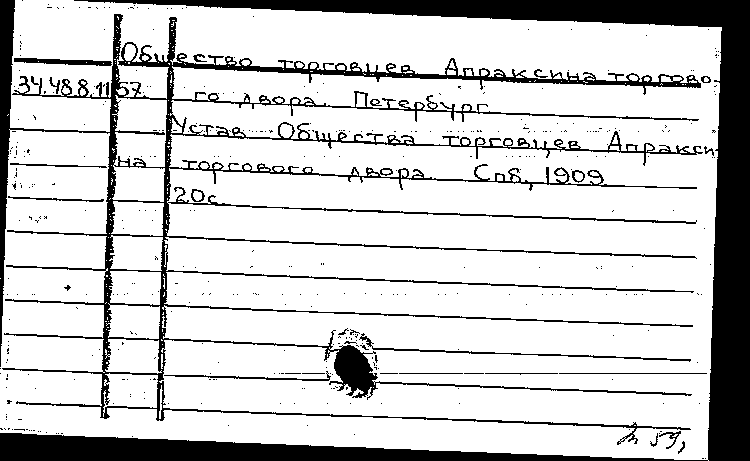 Общество торговцев Апраксина торгово-
34.48.8.1157. го двора. Петербург
Устав Общества торговцев Апракси-
на торгового двора. Спб, 1909.
20с.
59,